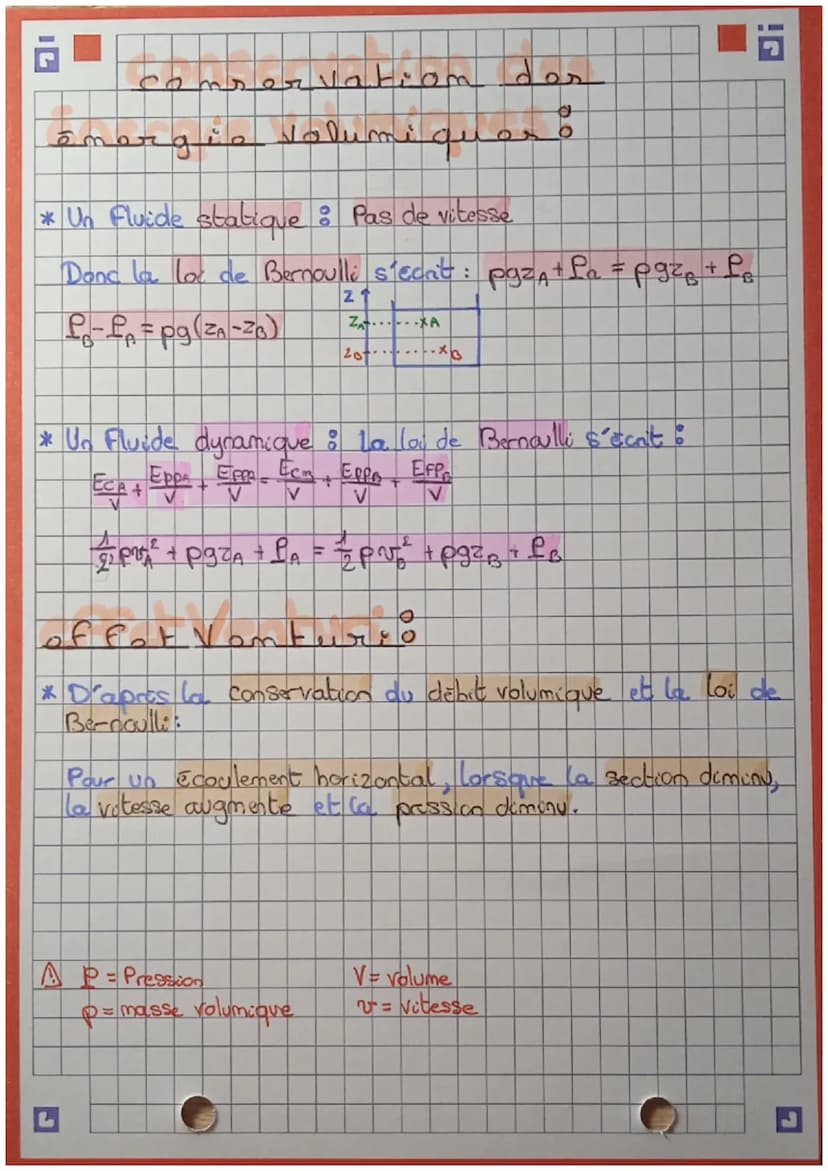 conservation des
énergie volumiques :
* Un fluide statique : Pas de vitesse
Donc la loi de Bernoulli s'ecrit : ρgzA + PA = ρgzB + PB
PB - PA = ρg(zA - zB)
z
zA xA
zB xB
* Un fluide dynamique : la loi de Bernoulli s'écrit :
EcA/V + EppA/V + EfpA/V = EcB/V + EppB/V + EfpB/V
1/2 ρvA² + ρgzA + PA = 1/2 ρvB² + ρgzB + PB
effet Venturi :
* D'apres la conservation du débit volumique et la loi de
Bernoulli :
Pour un écoulement horizontal, lorsque la section diminu,
la vitesse augmente et la pression diminu.
⚠ P = Pression V = volume
ρ = masse volumique v = vitesse